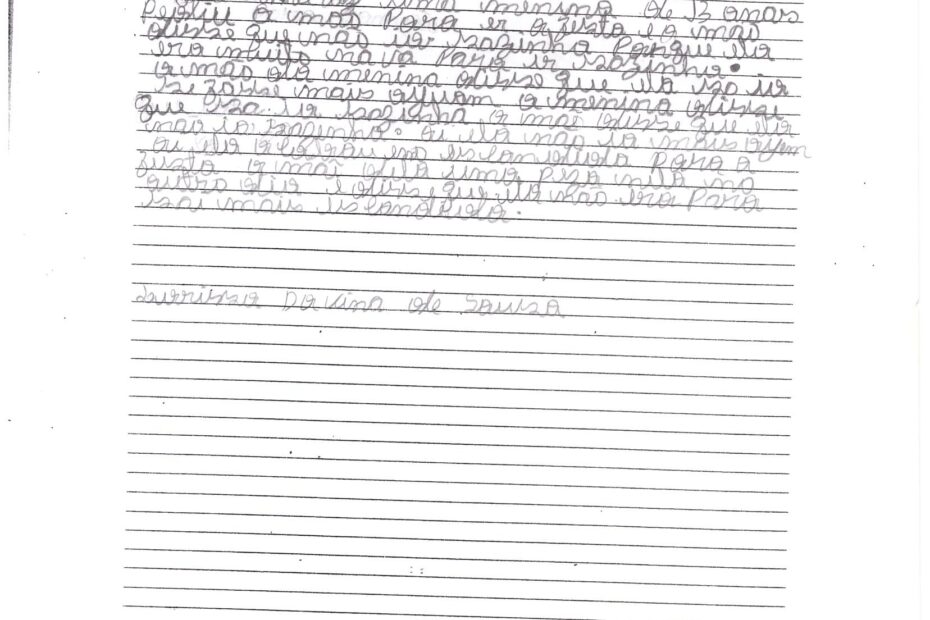 uma menina de 13 anos
pediu a mão para ir a festa e a mão
disse que não ia sozinha porque ela
era muito nava para ir sozinha.
a mão da menina disse que ela so ir
se fosse mais alguam a menina disse
que so ir sozinha a mão disse que ela
não ia sozinha. ai ela não ia mais
ai ela escandida para a
festa a mãe dela uma
outro dia e disse que ela não era para
sai mais iscandida.
Davina de Sousa